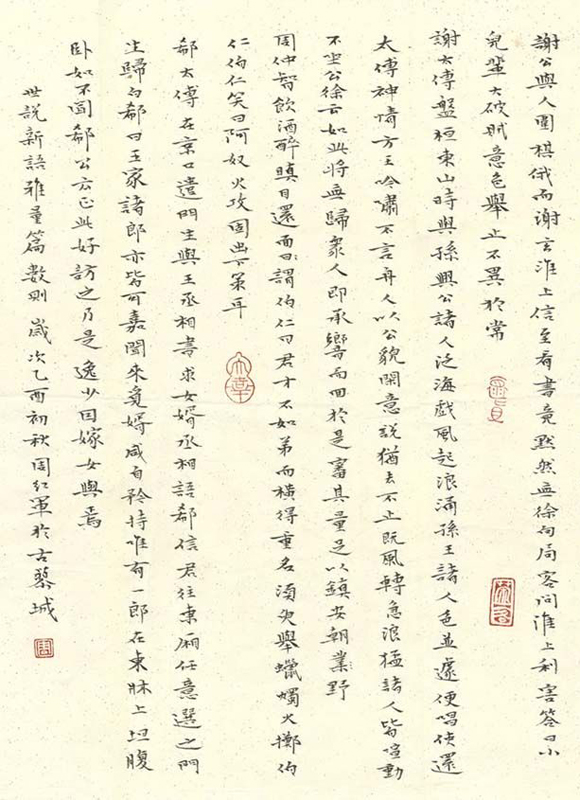 謝公與人圍棋俄而謝玄淮上信至看書竟默然無徐向局客問淮上利害答曰小
兒輩大破賊意色舉止不異於常
謝太傅盤桓東山時與孫興公諸人泛海戲風起浪涌孫王諸人色並遽便唱使還
太傅神情方王吟嘯不言舟人以公貌閑意說猶去不止既風轉急浪猛諸人皆喧動
不坐公徐云如此將無歸衆人即承響而回於是審其量足以鎮安朝業野
周仲智飲酒醉瞋目還面曰謂伯仁曰君才不如弟而橫得重名須臾舉蠟燭火擲伯
仁伯仁笑曰阿奴火攻固出下策耳
郗太傅在京口遣門生與王丞相書求女婿丞相語郗信君往東廂任意選之門
生歸白郗曰王家諸郎亦皆可嘉聞來覓婿咸自矜持唯有一郎在東牀上坦腹
卧如不聞郗公云正此好訪之乃是逸少因嫁女與焉
世說新語雅量篇數則 歲次乙酉初秋周紅軍於古黎城